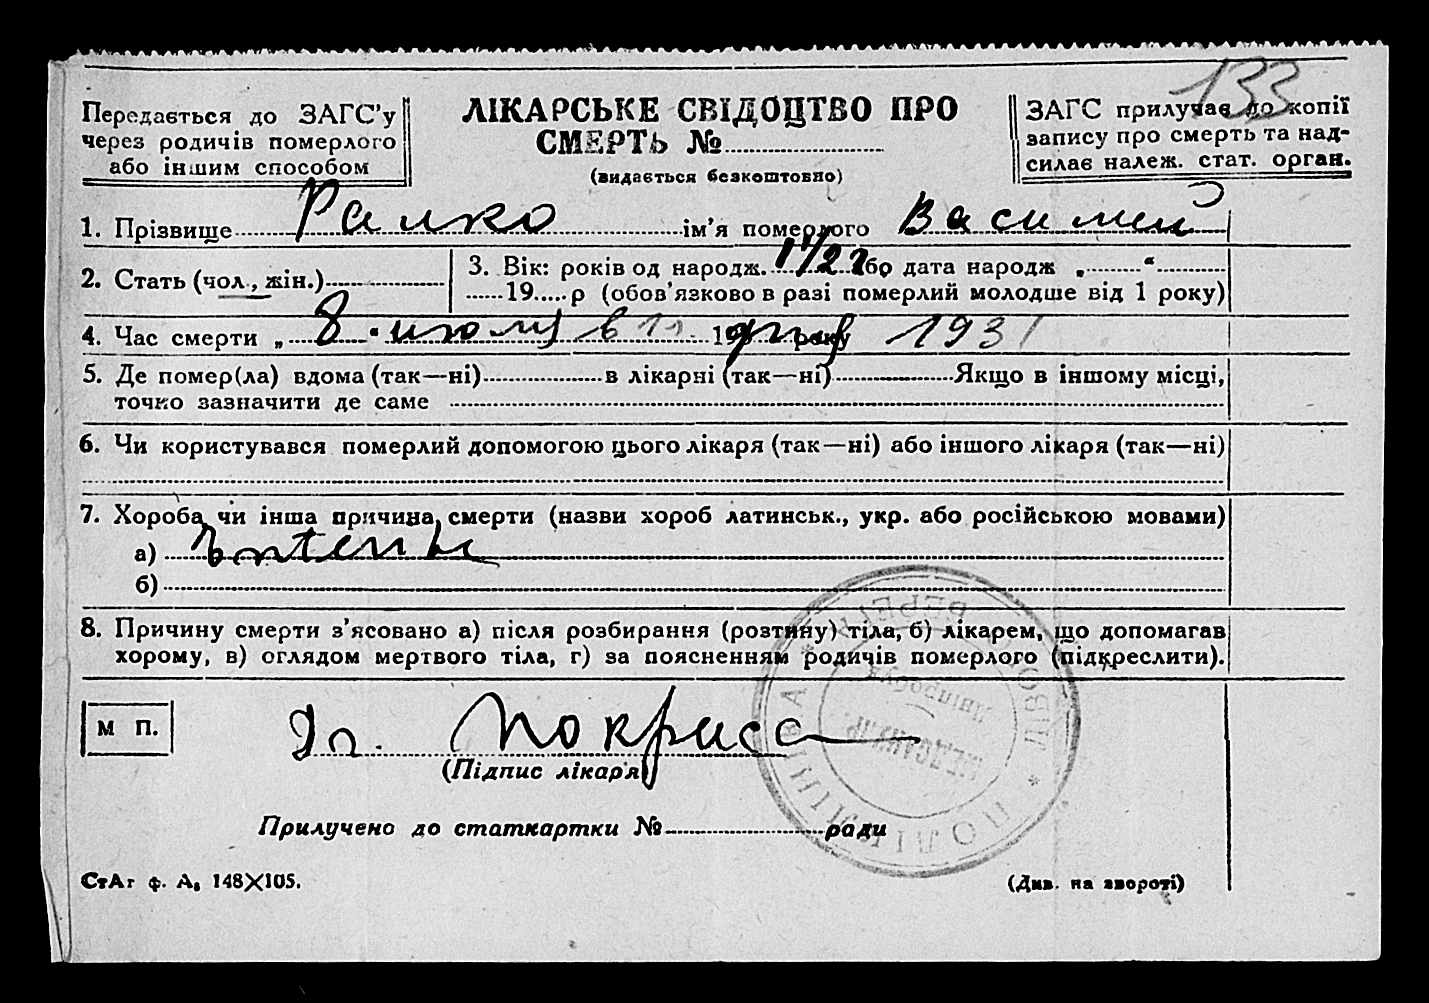 133
Передається до ЗАГС'у
через родичів померлого
або іншим способом
ЛІКАРСЬКЕ СВІДОЦТВО ПРО
СМЕРТЬ №
(видається безкоштовно)
ЗАГС прилучає до копії
запису про смерть та над-
силає належ. стат. орган.
1. Прізвище Ралко ім'я померлого Василий
2. Стать (чол., жін.)
3. Вік: років од народж. 1 1/2 або дата народж „ “
19 р (обов'язково в разі померлий молодше від 1 року)
4. Час смерти „ 8 “ июля в 11 193 року 1931
5. Де помер(ла) вдома (так—ні) в лікарні (так—ні) Якщо в іншому місці,
точно зазначити де саме
6. Чи користувався померлий допомогою цього лікаря (так—ні) або іншого лікаря (так—ні)
7. Хороба чи інша причина смерти (назви хороб латинськ., укр. або російською мовами)
а)
б)
8. Причину смерти з'ясовано а) після розбирання (розтину) тіла, б) лікарем, що допомагав
хорому, в) оглядом мертвого тіла, г) за поясненням родичів померлого (підкреслити).
М П.
(Підпис лікаря)
ПОЛІКЛІНІКА
Прилучено до статкартки № ради
СтАг ф. А, 148×105.
(Див. на звороті)